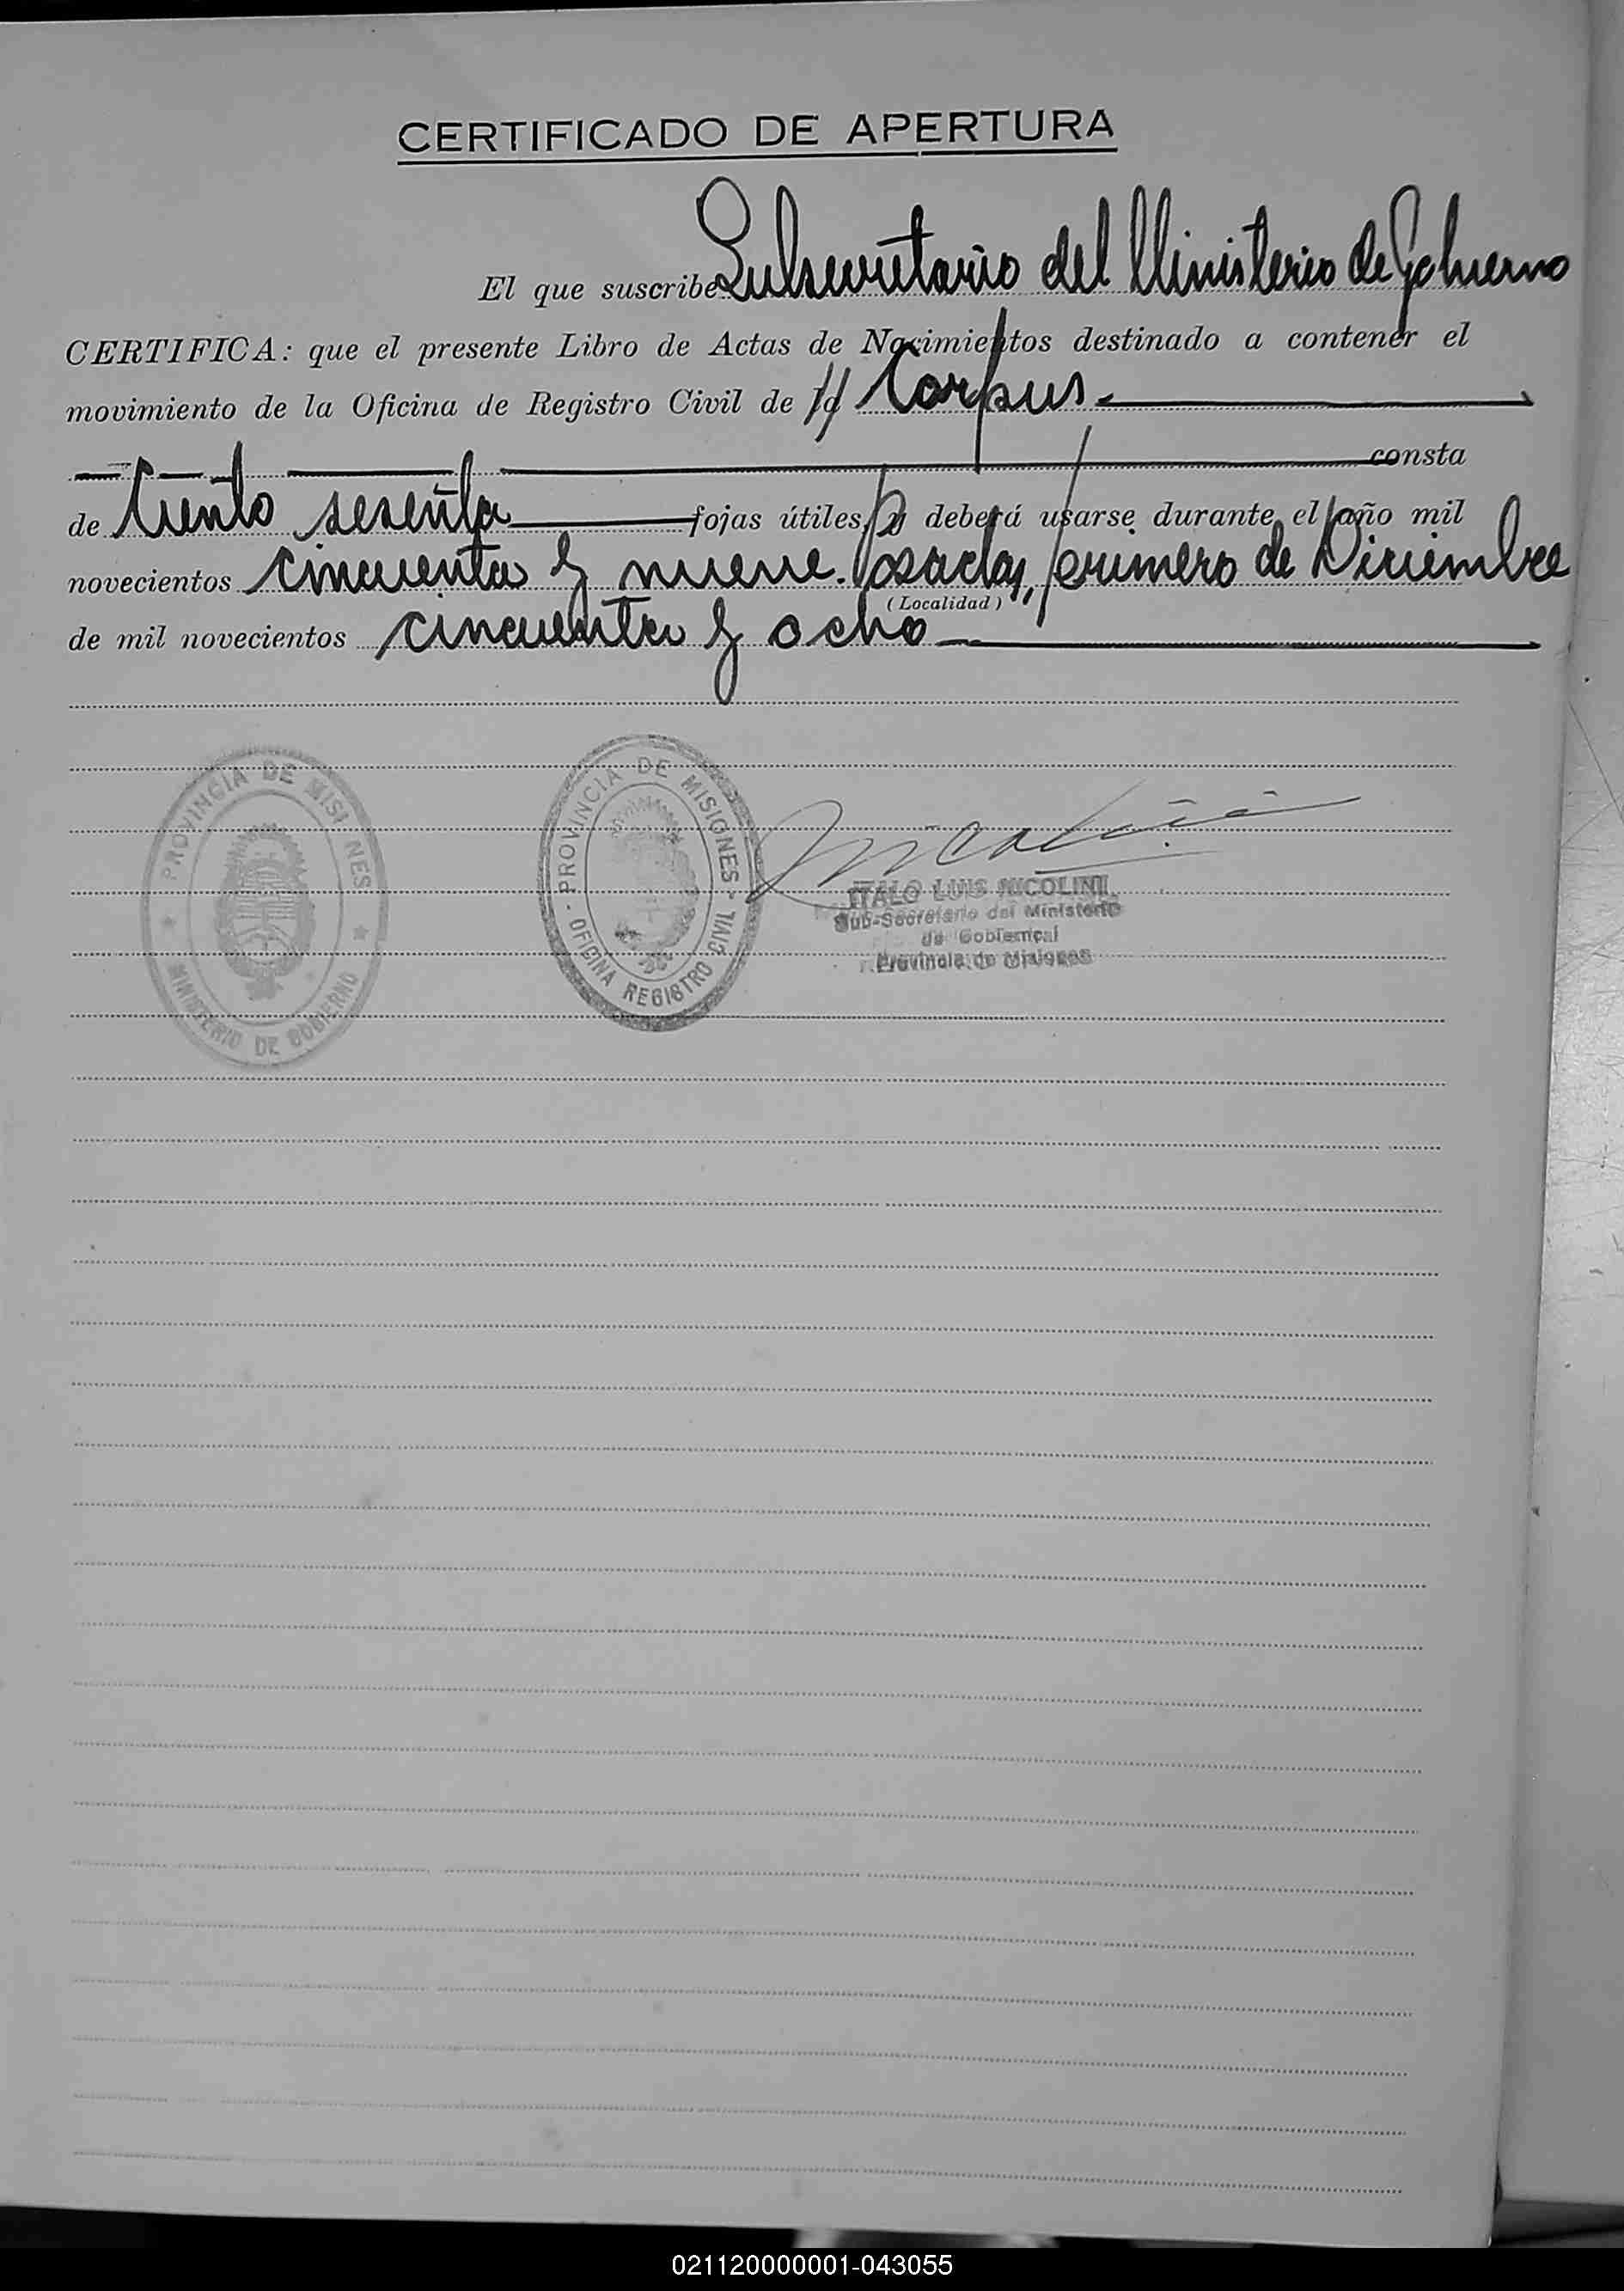 CERTIFICADO DE APERTURA
El que suscribe Subsecretario del Ministerio de Gobierno
CERTIFICA: que el presente Libro de Actas de Nacimientos destinado a contener el
movimiento de la Oficina de Registro Civil de Corpus.
consta
de Ciento sesenta fojas útiles, y deberá usarse durante el año mil
novecientos cincuenta y nueve. Posadas, primero de Diciembre
(Localidad)
de mil novecientos cincuenta y ocho
PROVINCIA DE MISIONES
MINISTERIO DE GOBIERNO
PROVINCIA DE MISIONES
OFICINA REGISTRO CIVIL
ITALO LUIS NICOLINI
Sub-Secretario del Ministerio
de Gobierno
Provincia de Misiones
021120000001-043055